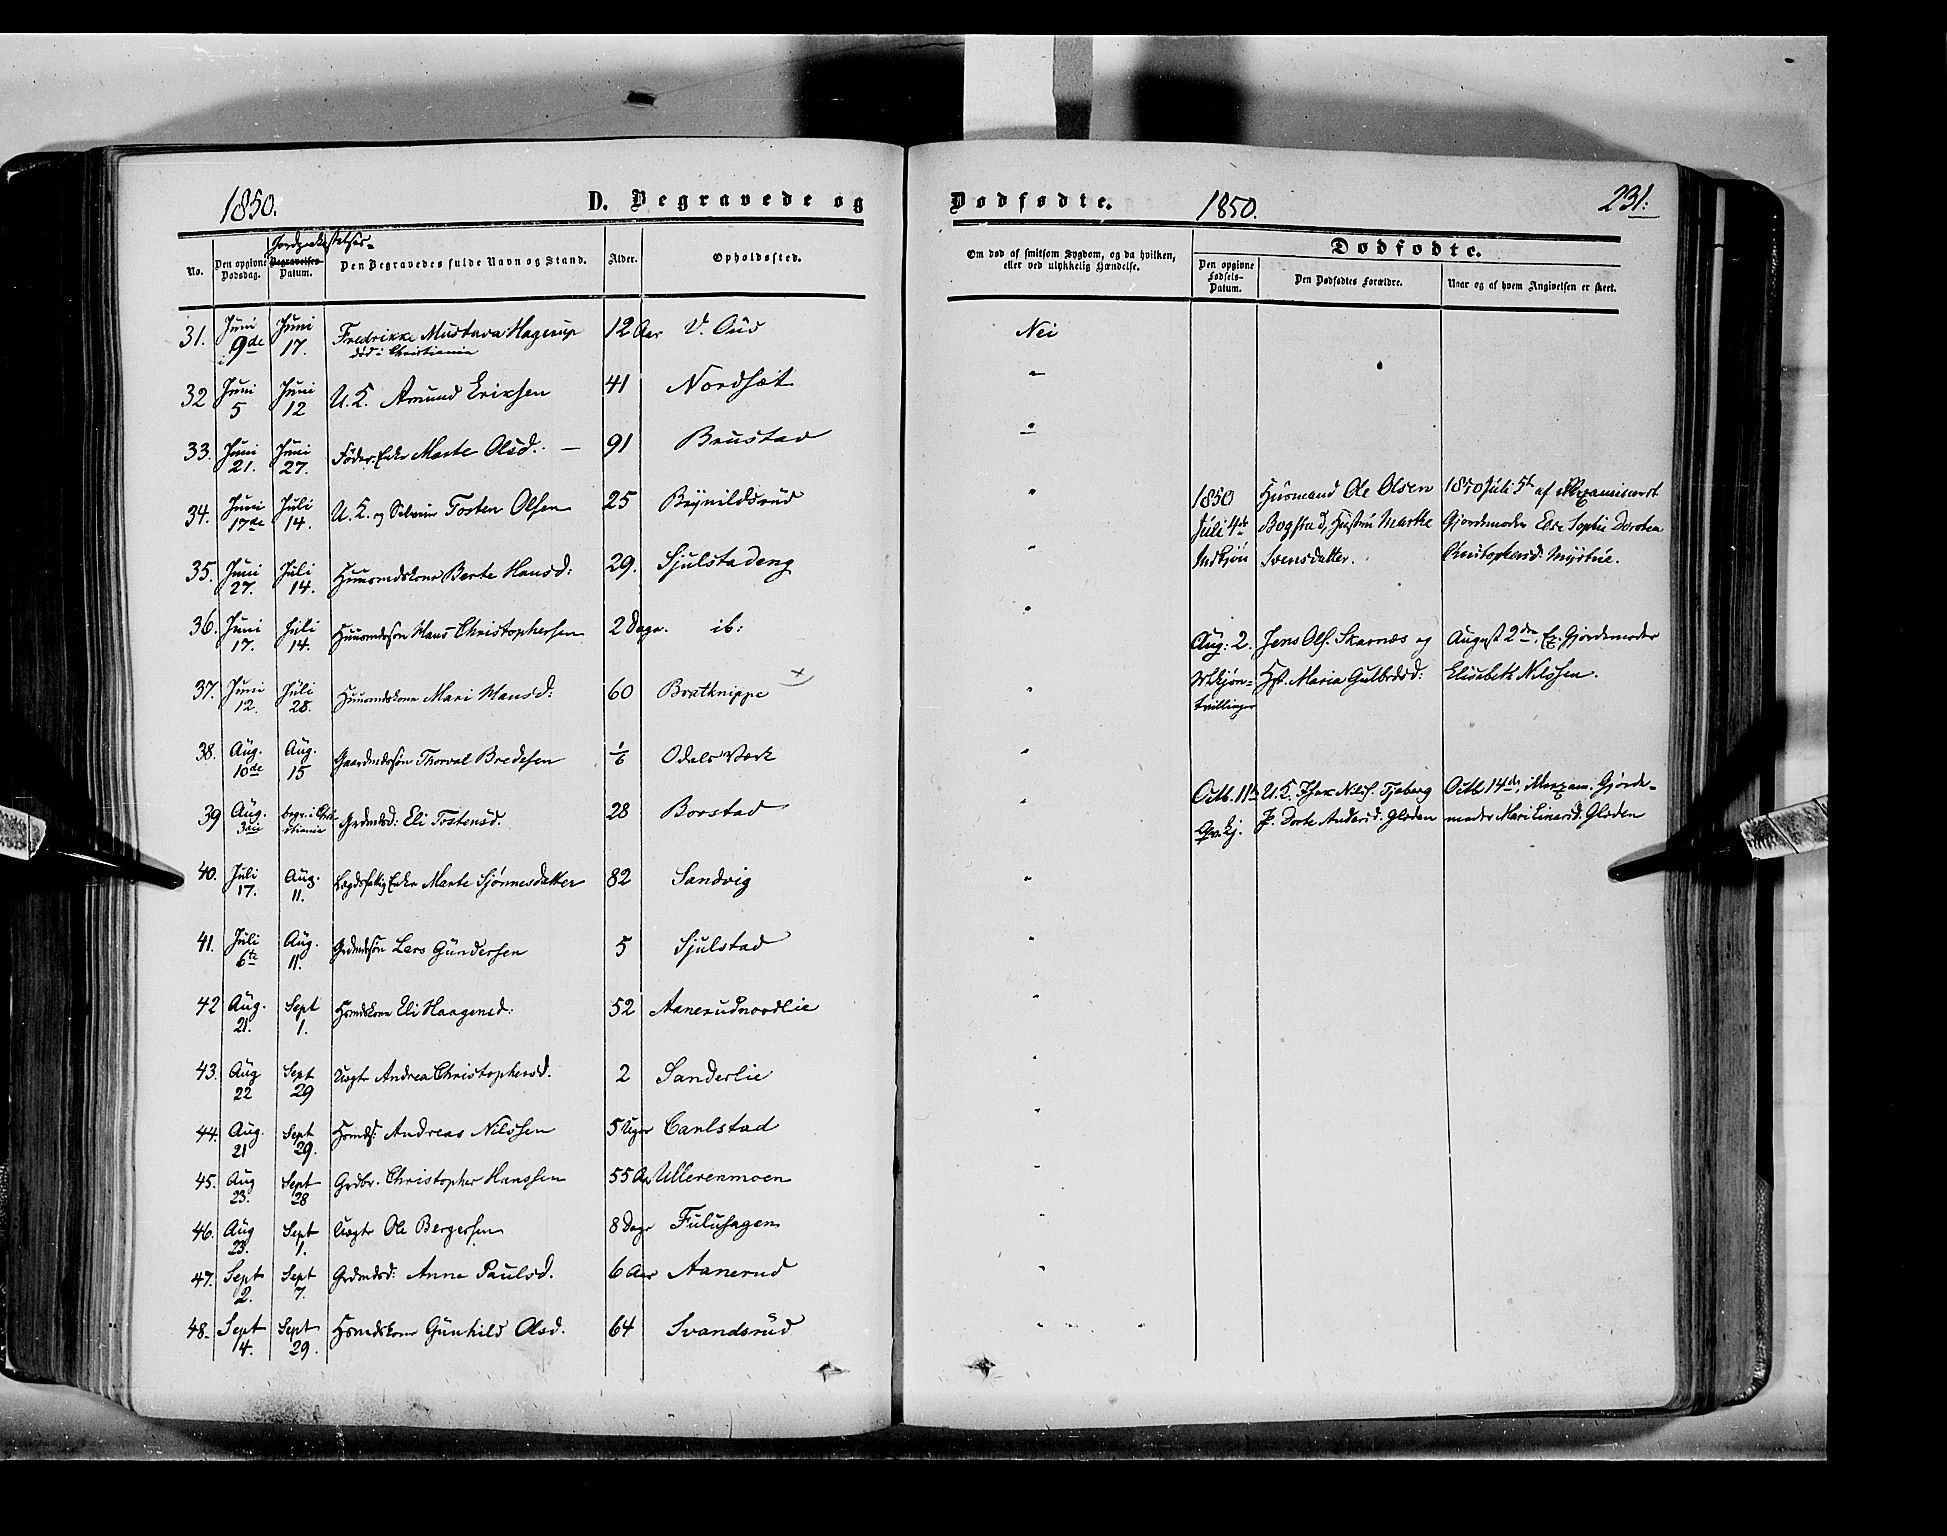 1850.
D. Begravede og
Jordpaakastelses-
No.
Den opgivne Dødsdag.
Begravelses Datum.
Den Begravedes fulde Navn og Stand.
Alder.
Opholdssted.
31. Juni 9de Juni 17. Fredrikke Hagerup 12 Aar V. Oüd
død i Christiania
32 Juni 5 Juni 12 U. K. Amund Eriksen 41 Nordsæt
33. Juni 21. Juni 27. Føder. Enke Marte Olsd. — 91 Brustad
34. Juni 17de Juli 14. U. K. og Selveier Tosten Olsen 25 Brÿnildsrud
35. Juni 27. Juli 14. Huusmdskone Berte Hansd: 29. Sjulstadeng
36. Juni 17. Juli 14. Huusmdssøn Hans Christophersen 2 Dage. ib:
37. Juni 12. Juli 28. Huusmdskone Mari Hansd: 60 Bratknippe
38. Aug. 10de Aug. 15 Gaardmdssøn Thorval Bredesen 1/6 Odals Værk
39 Aug. 3die begr. i Christiania Grdmdsd: Eli Tostensd. 28 Borstad
40. Juli 17. Aug. 11. Lægdsfattig Enke Marte Sjønnesdatter 82 Sandvig
41. Juli 6te Aug. 11. Grdmdssøn Lars Gündersen 5 Sjulstad
42 Aug. 21. Sept 1. Hsmdskone Eli Haagensd: 52 Aanerudnordlie
43. Aug 22 Sept 29 Uægte Andrea Christophersd. 2 Sanderlie
44. Aug. 21 Sept 29. Hsmds: Andreas Nilssen 5 Uger Carlstad
45. Aug 23. Sept 28 Grdbr. Christopher Hanssen 55 Aar Ullerenmoen
46. Aug 23. Sept 1. Uægte Ole Bergersen 8 Dage Fuluhagen
47. Sept 2. Sept 7. Grdmdsd: Anne Paulsd. 6 Aar Aanerud
48. Sept 14. Sept 29. Hsmdskone Günhild Olsd. 64 Svandsrüd
Dødfødte.
1850.
231.
Om død af smitsom Sygdom, og da hvilken, eller ved ulykkelig Hændelse.
Dødfødte.
Den opgivne Fødsels-Datum.
Den Dødfødtes Forældre.
Naar og af hvem Angivelsen er skeet.
Nei
1850 Husmand Ole Olsen 1850 Juli 5te af
Juli 4de Bogstad, Hustru Marthe Gjordemoder Edse Sophie Dorothea
Indkjøn Svensdatter. Christophersd. Myhrue.
Aug: 2. Jens Ols. Skarnæs og August 2den, Ex. Gjordemoder
Hst. Maria Gulbrdsd: Elisabeth Nilssen.
tvillinger
Octb. 11te U. K. Nils. Tjaberg Octb 14de, Gjorde-
kj. P. Dorte Andersd. Gloden moder Mari Einarsd. Gloden